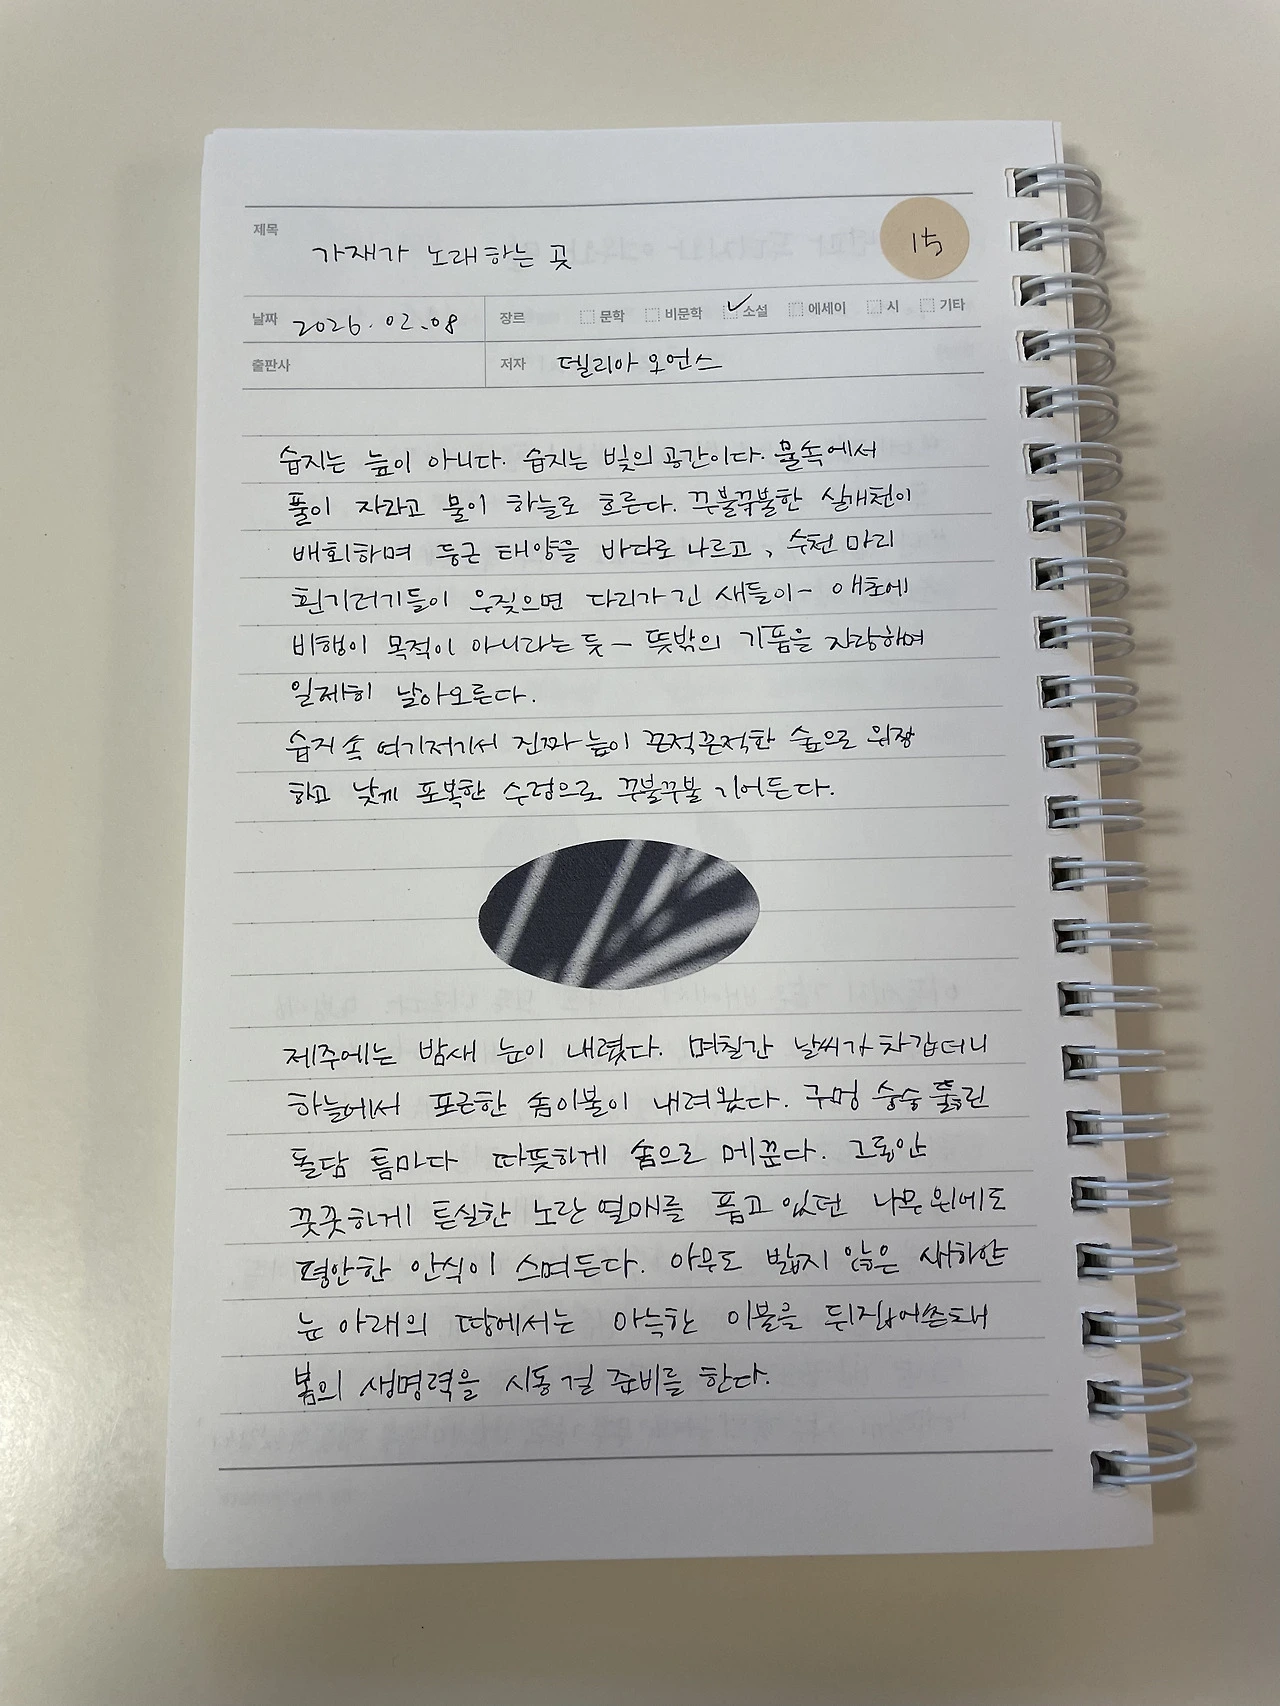 제목
가재가 노래하는 곳
15
날짜 2026.02.08 장르 문학 비문학 소설 에세이 시 기타
출판사 저자 델리아 오언스
습지는 늪이 아니다. 습지는 빛의 공간이다. 물속에서
풀이 자라고 물이 하늘로 흐른다. 꾸불꾸불한 실개천이
배회하며 둥근 태양을 바다로 나르고, 수천 마리
흰기러기들이 우짖으면 다리가 긴 새들이 - 애초에
비행이 목적이 아니라는 듯 - 뜻밖의 기품을 자랑하며
일제히 날아오른다.
습지 속 여기저기서 진짜 늪이 끈적끈적한 숲으로 위장
하고 낮게 포복한 수렁으로 꾸불꾸불 기어든다.
제주에는 밤새 눈이 내렸다. 며칠간 날씨가 차갑더니
하늘에서 포근한 솜이불이 내려왔다. 구멍 숭숭 뚫린
돌담 틈마다 따뜻하게 솜으로 메꾼다. 그동안
꿋꿋하게 튼실한 노란 열매를 품고 있던 나무 위에도
평안한 안식이 스며든다. 아무도 밟지 않은 새하얀
눈 아래의 땅에서는 아늑한 이불을 뒤집어쓴채
봄의 생명력을 시동 걸 준비를 한다.